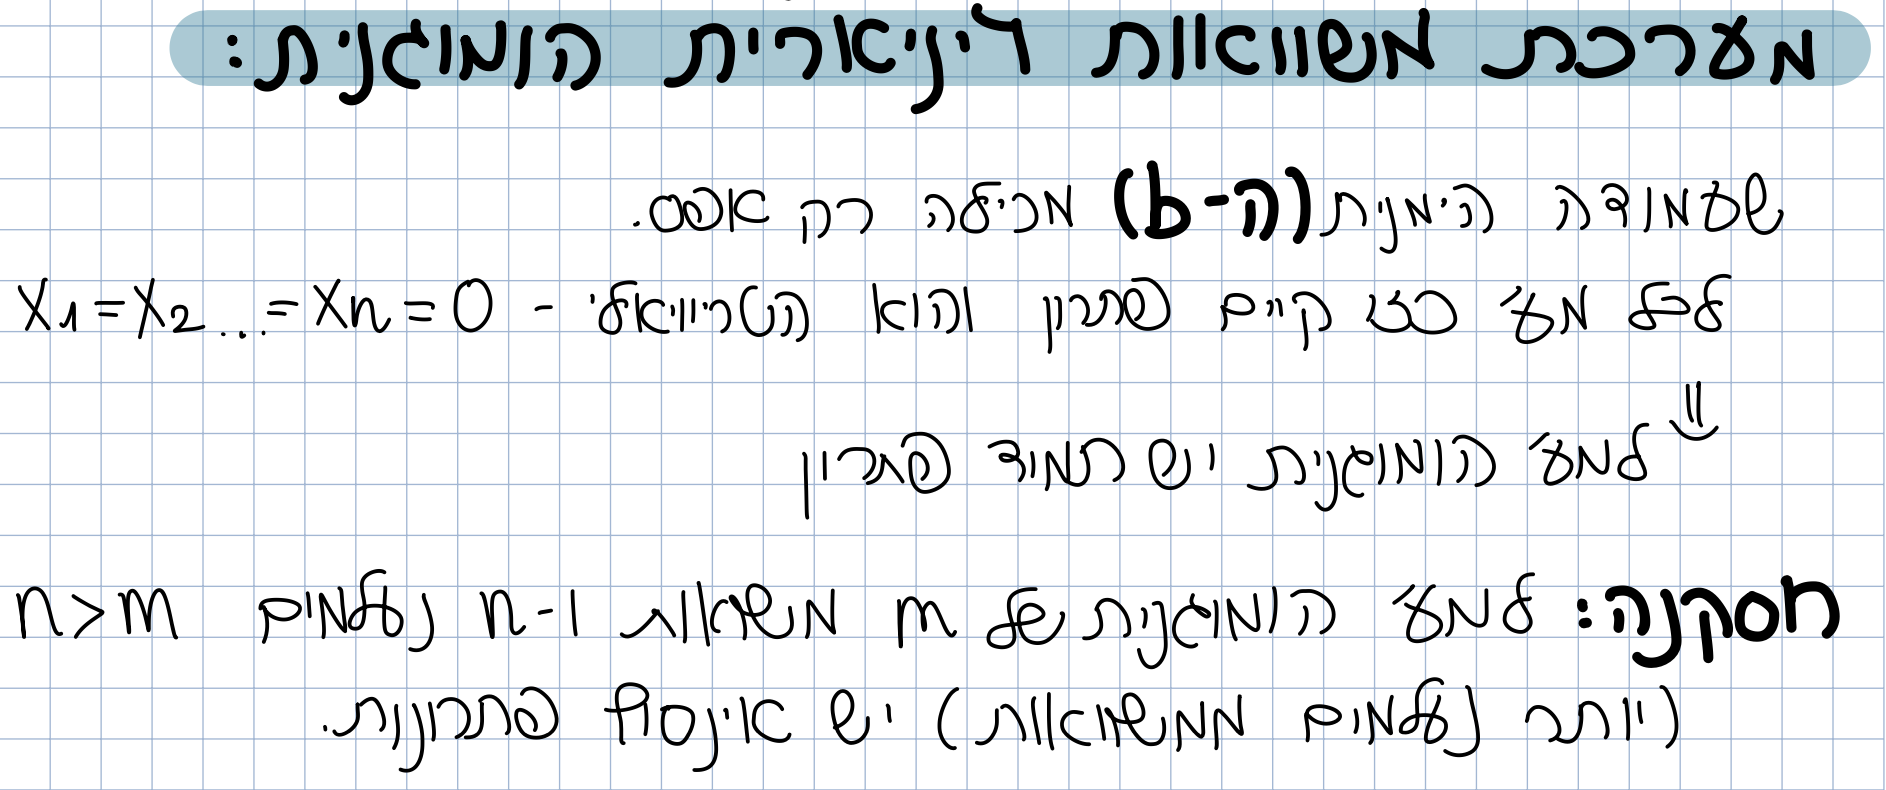 מערכת משוואות ליניארית הומוגנית:
שעמודה הימנית (ה-b) מכילה רק אפס.
לכל מע' כזו קיים פתרון והוא הטריוויאלי - X1=X2...=Xn=0
⇓
למע' הומוגנית יש תמיד פתרון
מסקנה: למע' הומוגנית של m משוואות ו-n נעלמים n>m
(יותר נעלמים ממשוואות) יש אינסוף פתרונות.